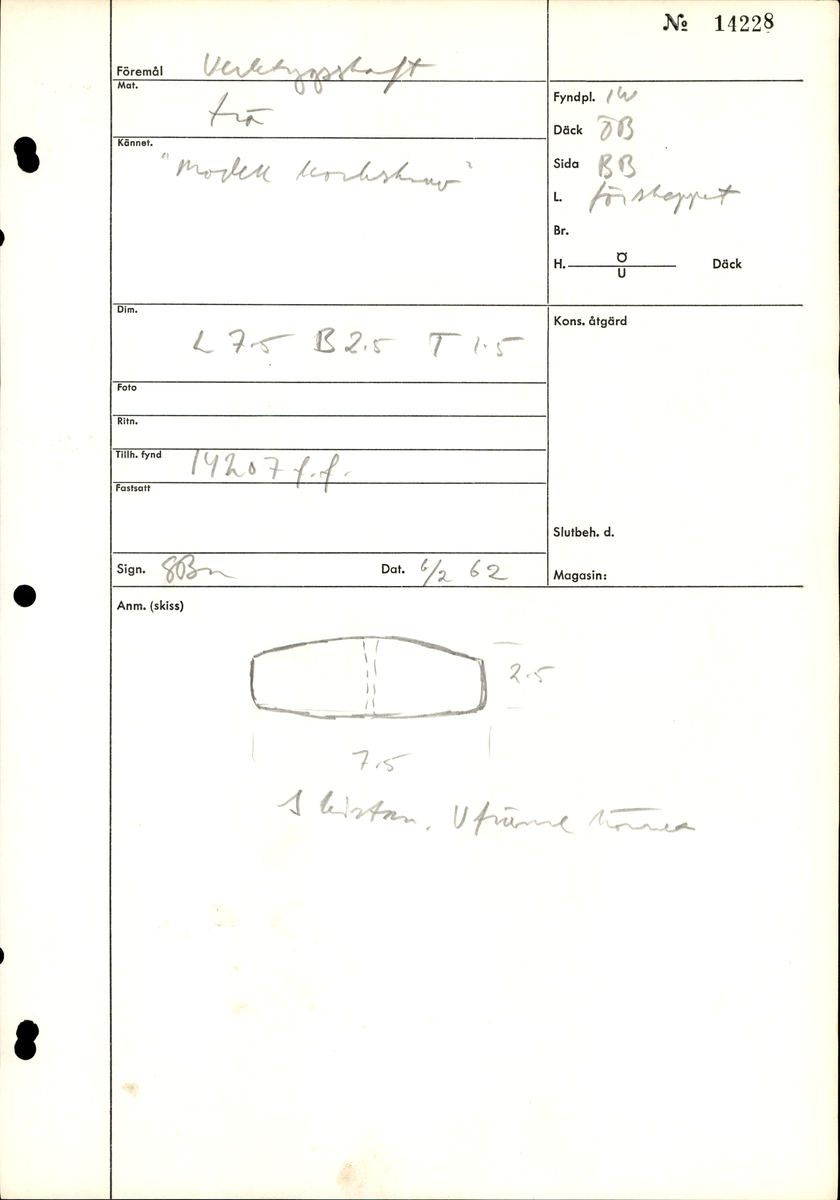 № 14228
Föremål Verktygsskaft
Mat. trä
Kännet. "Modell korkskruv"
Fyndpl. 1W
Däck ÖB
Sida BB
L. förskeppet
Br.
H. Ö U Däck
Dim. L 7.5 B 2.5 T 1.5
Kons. åtgärd
Foto
Ritn.
Tillh. fynd 14207 f.f.
Fastsatt
Slutbeh. d.
Sign. Dat. 6/2 62
Magasin:
Anm. (skiss)
2.5
7.5
I kistan, V främre hörnet